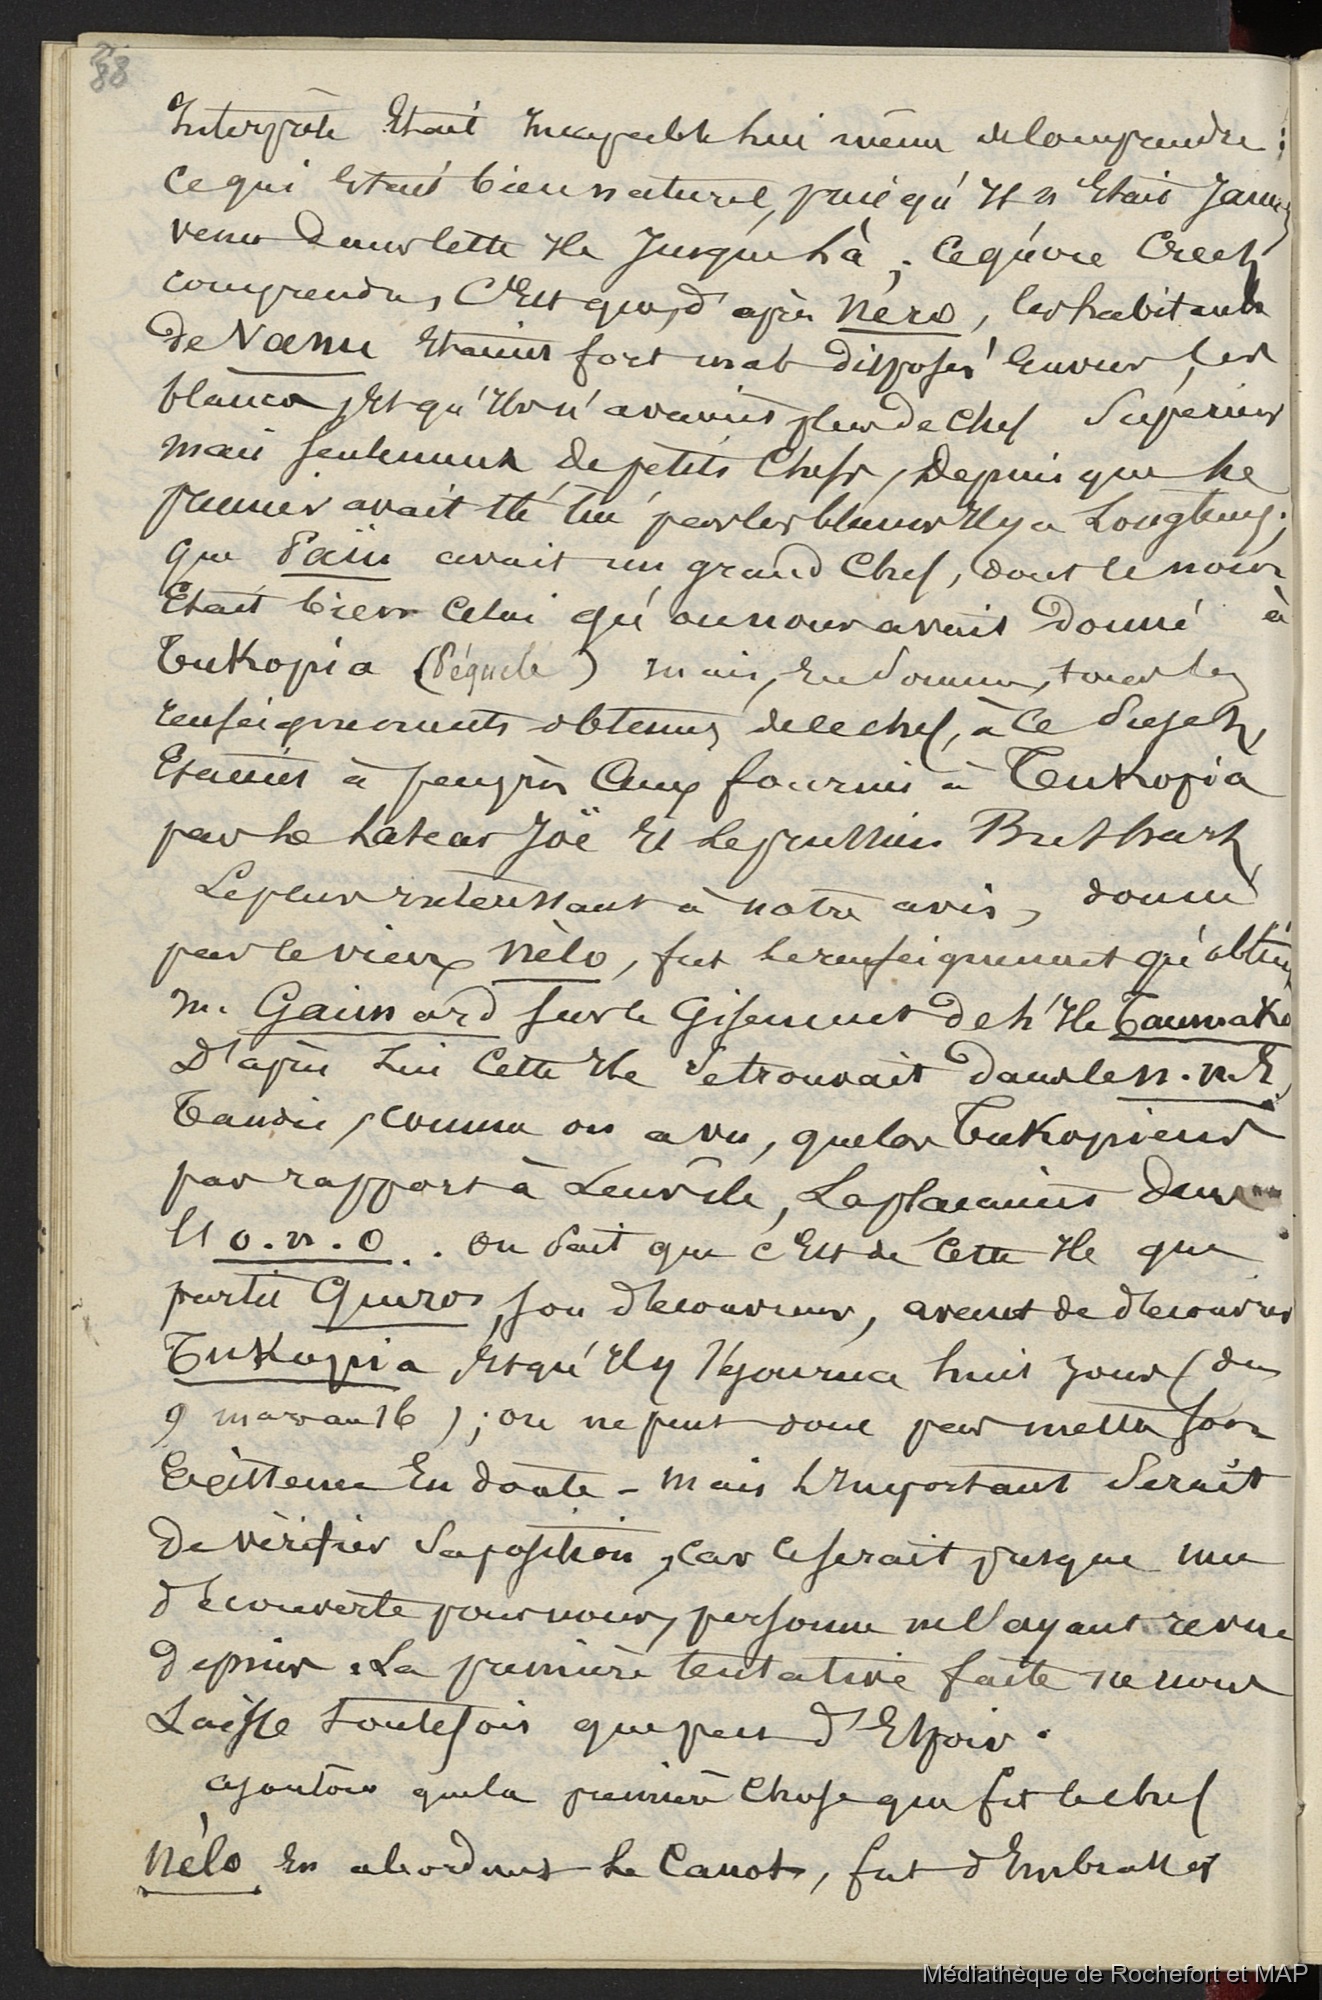 88
Interprète Etait Incapable lui même de Comprendre;
Ce qui Etait bien naturel, puisqu'Il n'Etait Jamais
venu dans cette Ile Jusque Là; Ce qu'on crut
comprendre, C'Est que, d'après Nero, les habitants
de Vanu Etaient fort mal disposés Envers les
blancs, Et qu'Ils n'avaient plus de Chef Supérieur
mais seulement de petits Chefs, Depuis que Le
premier avait Eté tué par les blancs Il y a Longtems;
que Païu avait un grand Chef, dont le nom
Etait bien Celui qu'on nous avait Donné à
Tukopia (Péquelé) mais, En Somme, tous les
renseignements obtenus de ce chef, à Ce Sujet,
Etaient à peu près Ceux fournis à Tukopia
par Le Lascar Joë Et Le prussien Bushart
Le plus intéressant à notre avis, donné
par le vieux Nélo, fut Le renseignement qu'obtint
M. Gaimard sur le Gisement de L'Ile Taumako
D'après Lui Cette Ile Se trouvait dans le N.N.E,
Tandis, comme on a vu, que les Tukopiens
par rapport à Leur île, La plaçaient dans
l'O.N.O. . On Sait que C'Est de Cette Ile que
partit Quiros, son découvreur, avant de découvrir
Tukopia, Et qu'Il y Séjourna huit jours (du
9 mars au 16); on ne peut donc pas mettre son
Existence En doute - Mais L'Important Serait
De vérifier Sa position, Car Ce serait presque une
découverte pour nous, personne ne l'ayant revue
depuis. La première tentative faite ne nous
Laisse toutefois que peu d'Espoir.
ajoutons que la première Chose que fit le chef
Nélo En abordant Le Canot, fut d'Embrasser
Médiathèque de Rochefort et MAP